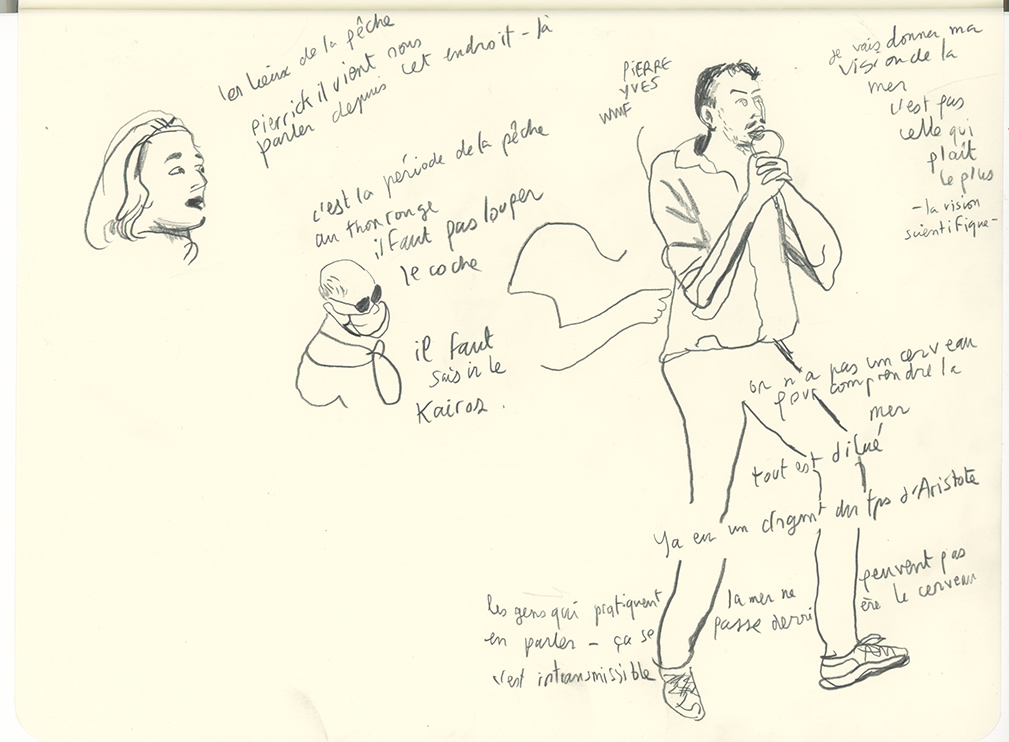 les lieux de la pêche
pierrick il vient nous
parler depuis cet endroit-là
c'est la période de la pêche
au thon rouge
il faut pas louper
le coche
il faut
saisir le
Kairos.
PIERRE
YVES
WWF
je vais donner ma
vision de la
mer
c'est pas
celle qui
plaît
le plus
- la vision
scientifique -
on n a pas un cerveau
pour comprendre la
mer
tout est dilué
ya eu un du tps d'Aristote
les gens qui pratiquent la mer ne peuvent pas
en parler - ça se passe derri ère le cerveau
c'est intransmissible